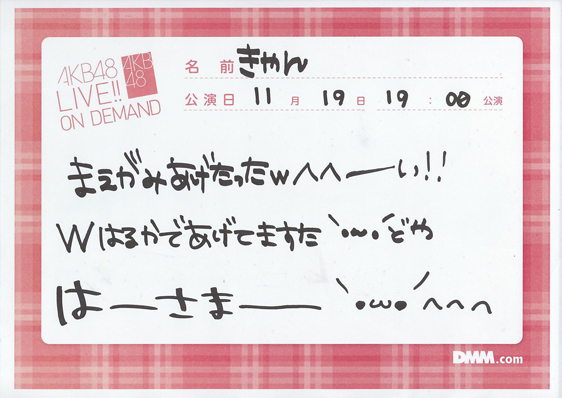 AKB48
LIVE!!
ON DEMAND
AKB
48
名前 きゃん
公演日 11月19日 19:00 公演
まえがみあげたったwへへーーい!!
Wはるかであげてますた`・ω・´どや
はーーさまーーー `・ω・´へへへ
DMM.com